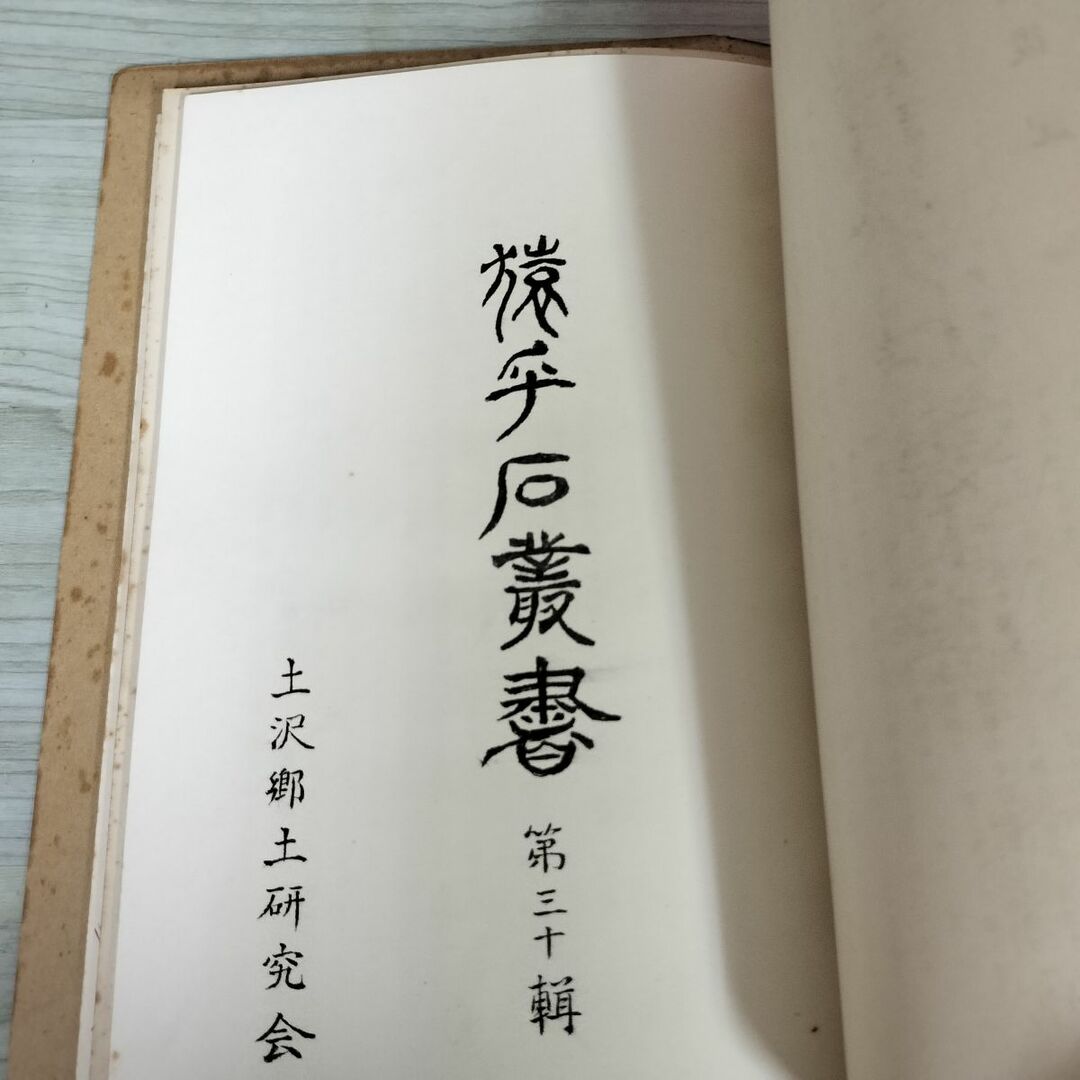 猿手石叢書
第三十輯
土沢郷土研究会